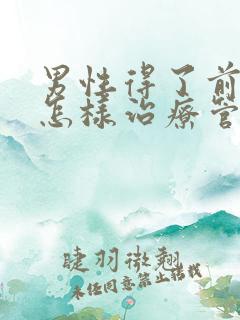 男性得了前
怎样治疗管
睫羽微翘
未经同意禁止转载